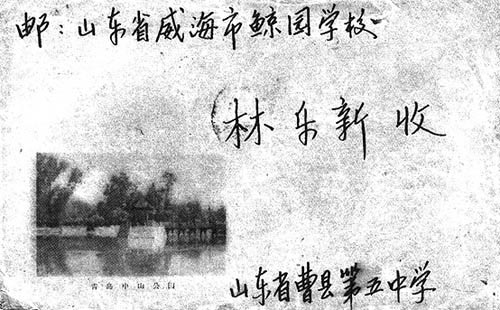 邮：山东省威海市鲸园学校
林乐新 收
青岛中山公园
山东省曹县第五中学